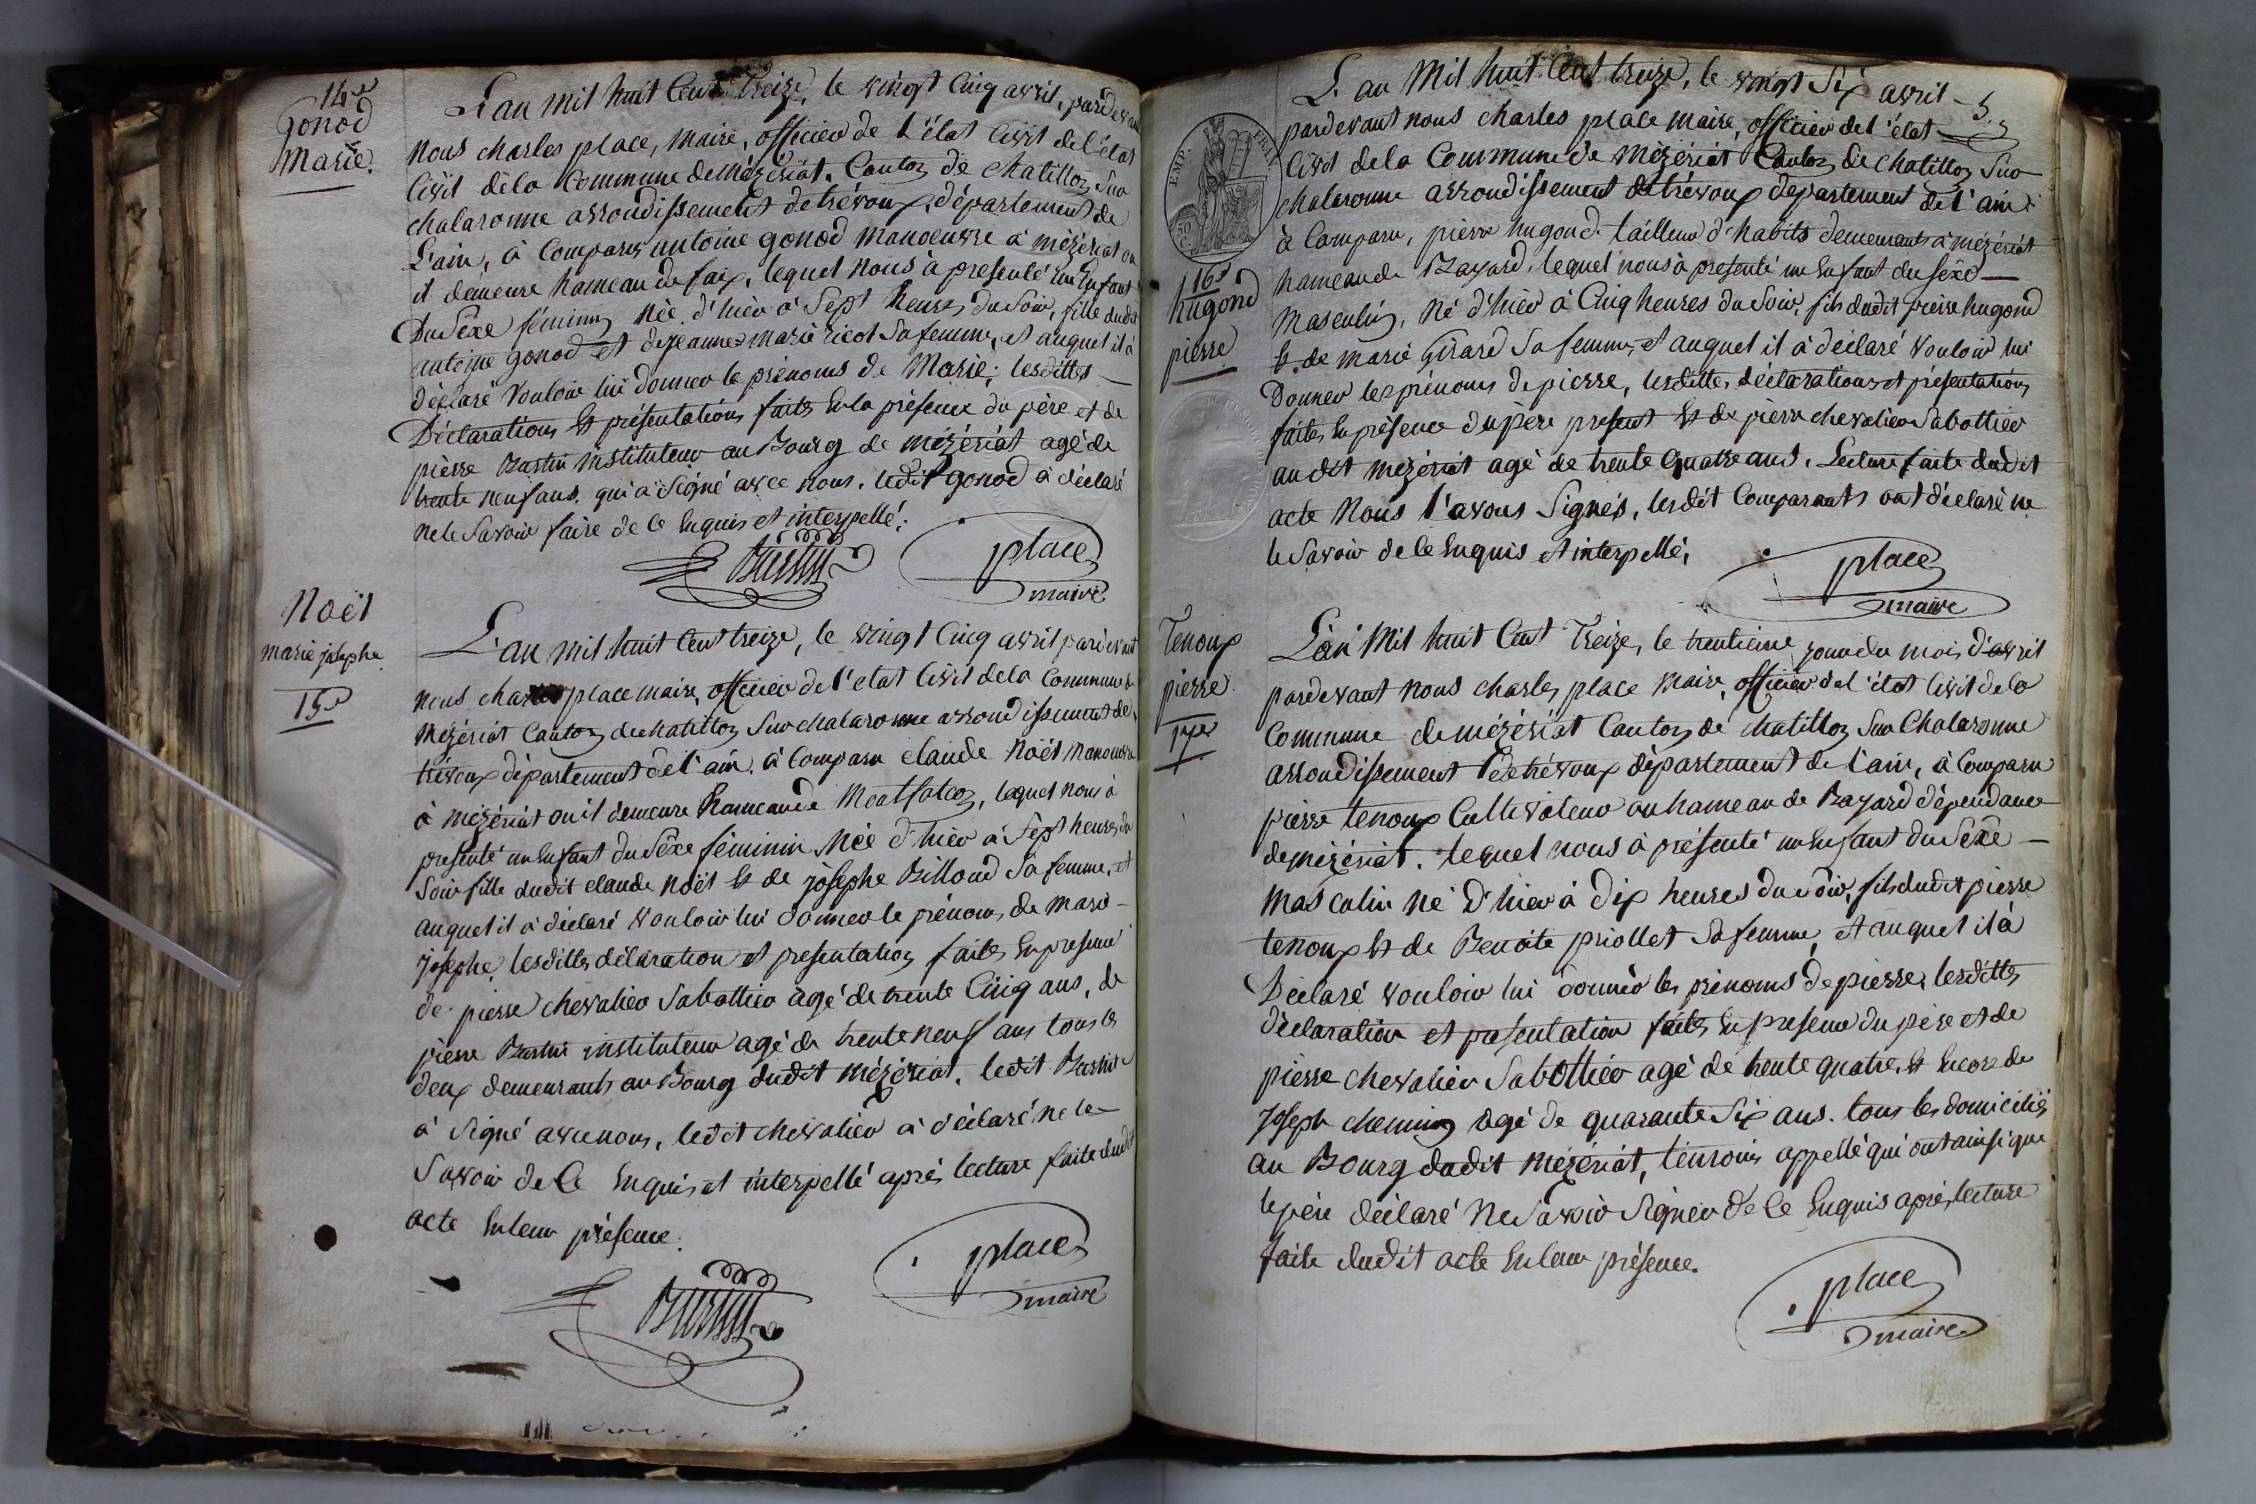 14e
Gonod
Marie.
L'an mil huit Cent treize, le vingt Cinq avril, pardevant
nous charles place, maire, officier de l'état Civil de l'état
Civil de la Commune de Mézériat. Canton de chatillon Sur
chalaronne arrondissement de trévoux, département de
L'ain, à Comparu antoine gonod manoeuvre à mézériat ou
il demeure hameau de faix, lequel nous à presenté un Enfant
Du Sêxe féminin née d'hier à Sept heures du Soir, fille dudit
antoine gonod et de jeanne marie ricol Sa femme, et auquel il à
déclaré Vouloir lui donner le prénoms de Marie; lesdittes
Déclarations Et présentations faites En la présence du père et de
pierre Bastin instituteur au Bourg de mézériat agé de
trente neuf ans. qui à Signé avec nous. ledit gonod à déclaré
ne le Savoir faire de Ce Enquis et interpellé.
place
maire
Noël
marie josephe
15e
L'an mil huit Cent treize, le vingt Cinq avril pardevant
nous charles place maire officier de l'état Civil de la Commune de
Mézériat Canton de chatillon Sur chalaronne arrondissement de
trévoux département de l'ain. à Comparu claude Noël manoeuvre
à mézériat ou il demeure hameau de Montfalcon, lequel nous à
presenté un Enfant du Sêxe féminin Née d'hier à Sept heures du
Soir fille dudit claude Noël Et de josephe Billoud Sa femme, et
auquel il à déclaré vouloir lui donner le prénoms de marie
josephe, lesdittes déclaration et presentation faites En presence
de pierre chevalier Sabottier agé de trente Cinq ans, de
pierre Bastin instituteur agé de trente neuf ans tous les
deux demeurants au Bourg dudit mézériat. ledit Bastin
à Signé avec nous, ledit chevalier à déclaré ne le
Savoir de Ce Enquis et interpellé après lecture faite dudit
acte En leur présence.
place
maire
5.
L'an Mil huit Cent treize, le vingt Six avril
pardevant nous charles place maire, officier de l'état
Civil de la Commune de Mézériat Canton de chatillon Sur
chalaronne arrondissement de trévoux département de l'ain
à Comparu, pierre hugond tailleur d'habits demeurant à mézériat
hameau de Bayard, lequel nous à presenté un Enfant du Sêxe
Masculin, Né d'hier à Cinq heures du Soir, fils dudit pierre hugond
Et de marie Girard Sa femme, et auquel il à déclaré Vouloir lui
Donner les prénoms de pierre, lesdittes déclarations et présentations
faites En présence du père présent Et de pierre chevalier Sabottier
au dit mézériat agé de trente quatre ans. Lecture faite dudit
acte Nous l'avons Signés, lesdit Comparants ont déclaré ne
le Savoir de Ce Enquis et interpellé,
place
maire
EMP. FRAN.
50 C.
16e
hugond
pierre
Tenoux
pierre
17e
L'an Mil huit Cent Treize, le trentieme jour du mois d'avril
pardevant nous charles place Maire, officier de l'état Civil de la
Commune de mézériat Canton de chatillon Sur Chalaronne
arrondissement de trévoux département de l'ain, à Comparu
pierre tenoux Cultivateur au hameau de Bayard dépendance
de mézériat. lequel nous à présenté un Enfant du Sêxe
Masculin né D'hier à dix heures du Soir, fils dudit pierre
tenoux Et de Benoite priollet Sa femme, et auquel il à
Déclaré vouloir lui donner les prénoms de pierre, lesdittes
déclaration et presentation faites En presence du père et de
pierre chevalier Sabottier agé de trente quatre, Et Encore de
Joseph chemin agé de quarante Six ans. tous les domiciliés
au Bourg dudit Mézériat, témoins appellé qui ont ainsi que
le père déclaré Ne Savoir Signer de Ce Enquis après lecture
faite dudit acte En leur présence.
place
maire